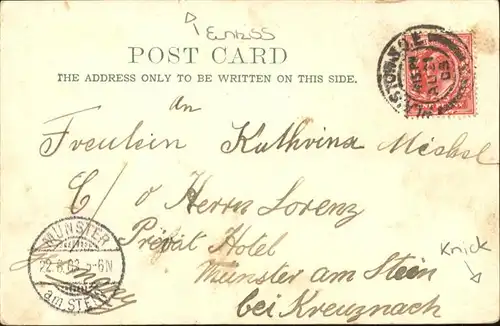 Einriss
POST CARD
THE ADDRESS ONLY TO BE WRITTEN ON THIS SIDE.
an
Freulein Kathrina Mickel
C/o Herrn Lorenz
Privat Hotel
Münster am Stein
bei Kreuznach
Germany
Knick
MÜNSTER
22.8.03 5-6N
am STEIN